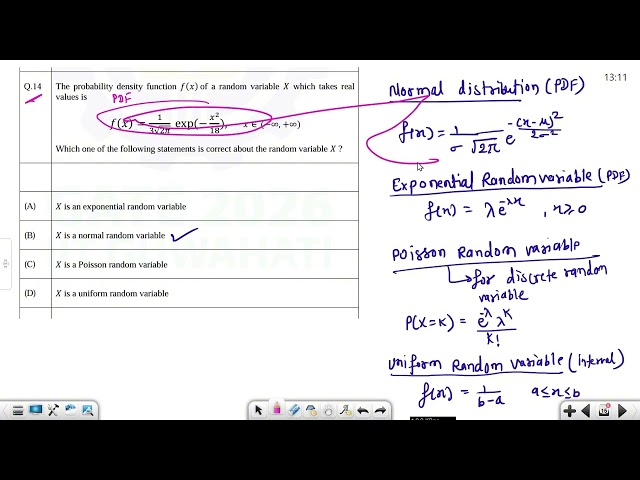 13:11
Q.14 The probability density function f(x) of a random variable X which takes real
values is
PDF
f(x) = 1/(3√2π) exp(−x²/18), x ∈ (−∞, +∞)
Which one of the following statements is correct about the random variable X ?
(A) X is an exponential random variable
(B) X is a normal random variable
(C) X is a Poisson random variable
(D) X is a uniform random variable
2026
Normal distribution (PDF)
f(x) = 1/(σ √2π) e^(−(x−μ)²/2σ²)
Exponential Random variable (PDF)
f(x) = λe^(−λx) , x≥0
Poisson Random variable
for discrete random
variable
P(X=K) = e^(−λ) λ^K / K!
Uniform Random variable (Interval)
f(x) = 1/(b−a) a≤x≤b